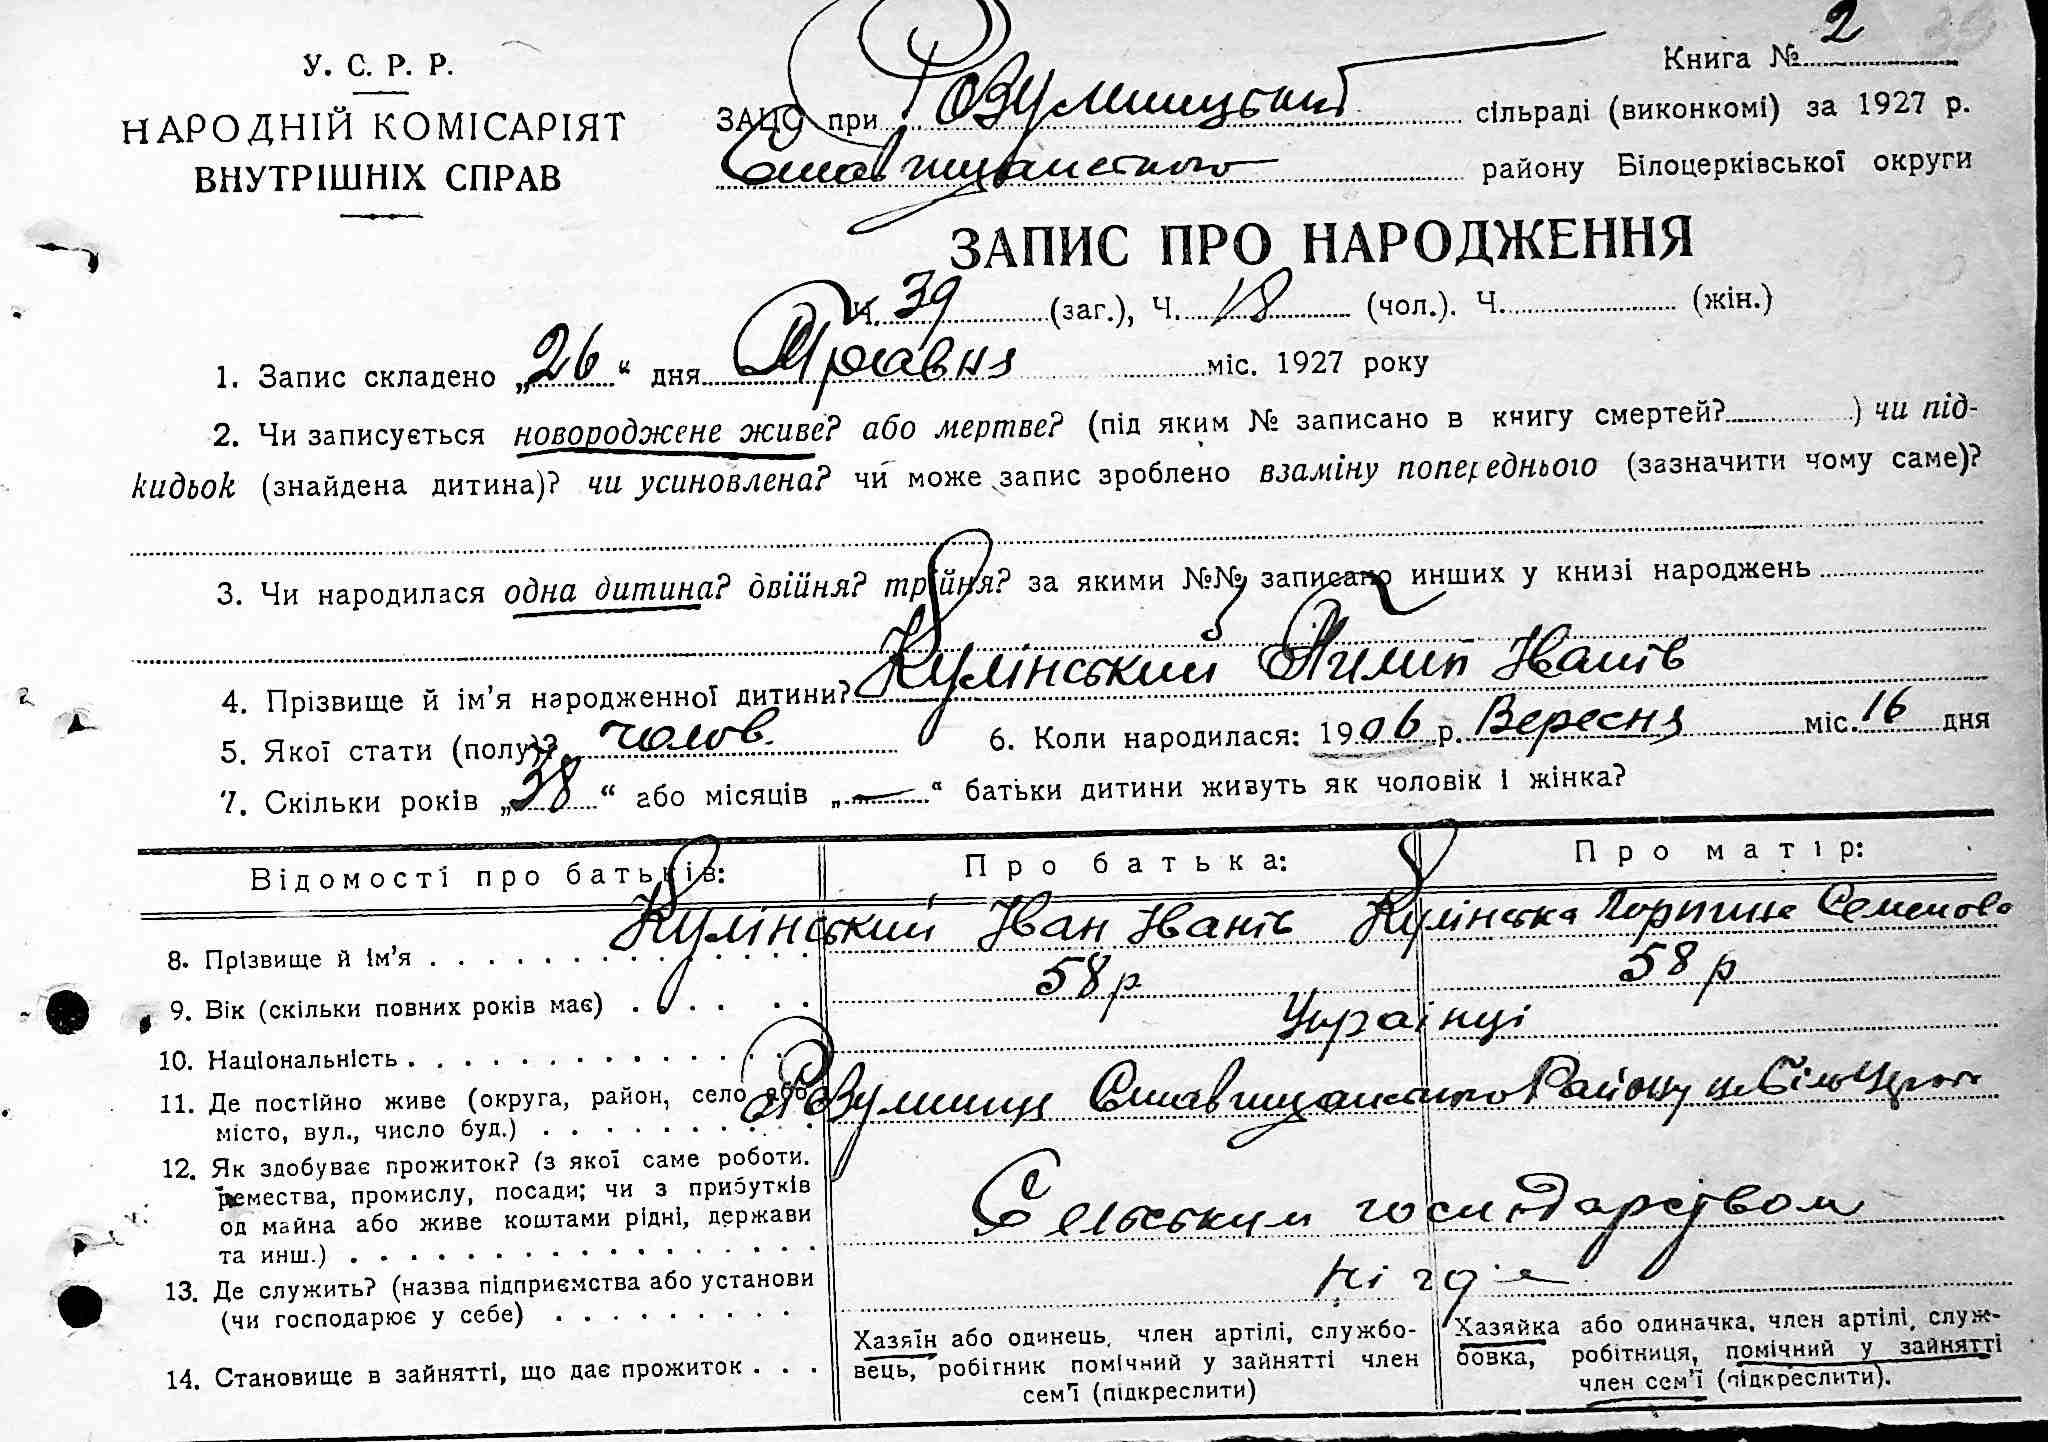 У. С. Р. Р.
НАРОДНІЙ КОМІСАРІЯТ
ВНУТРІШНІХ СПРАВ
Книга № 2
ЗАЦС при Розумницький сільраді (виконкомі) за 1927 р.
Ставищанского району Білоцерківської округи
ЗАПИС ПРО НАРОДЖЕННЯ
Ч. 39 (заг.), Ч. 18 (чол.). Ч. (жін.)
1. Запис складено „26“ дня Травня міс. 1927 року
2. Чи записується новороджене живе? або мертве? (під яким № записано в книгу смертей? ) чи під-
кидьок (знайдена дитина)? чи усиновлена? чи може запис зроблено взаміну попереднього (зазначити чому саме)?
3. Чи народилася одна дитина? двійня? трійня? за якими №№ записано инших у книзі народжень
4. Прізвище й ім’я народженної дитини? Кулінський Пилип Іванів
5. Якої стати (полу)? чолов. 6. Коли народилася: 1906 р. Вересня міс. 16 дня
7. Скільки років „38“ або місяців „—“ батьки дитини живуть як чоловік і жінка?
Відомості про батьків: Про батька: Про матір:
8. Прізвище й ім’я Кулінський Іван Іванів Кулінська Горпина Семенова
9. Вік (скільки повних років має) 58 р 58 р
10. Національність Українці
11. Де постійно живе (округа, район, село або Розумниці Ставищанского Району
місто, вул., число буд.)
12. Як здобуває прожиток? (з якої саме роботи,
ремества, промислу, посади; чи з прибутків
од майна або живе коштами рідні, держави Сельським господарством
та инш.)
13. Де служить? (назва підприємства або установи нігде
(чи господарює у себе)
14. Становище в зайнятті, що дає прожиток
Хазяїн або одинець, член артілі, службо-
вець, робітник помічний у зайнятті член
сем’ї (підкреслити)
Хазяйка або одиначка, член артілі, служ-
бовка, робітниця, помічний у зайнятті
член сем’ї (підкреслити).